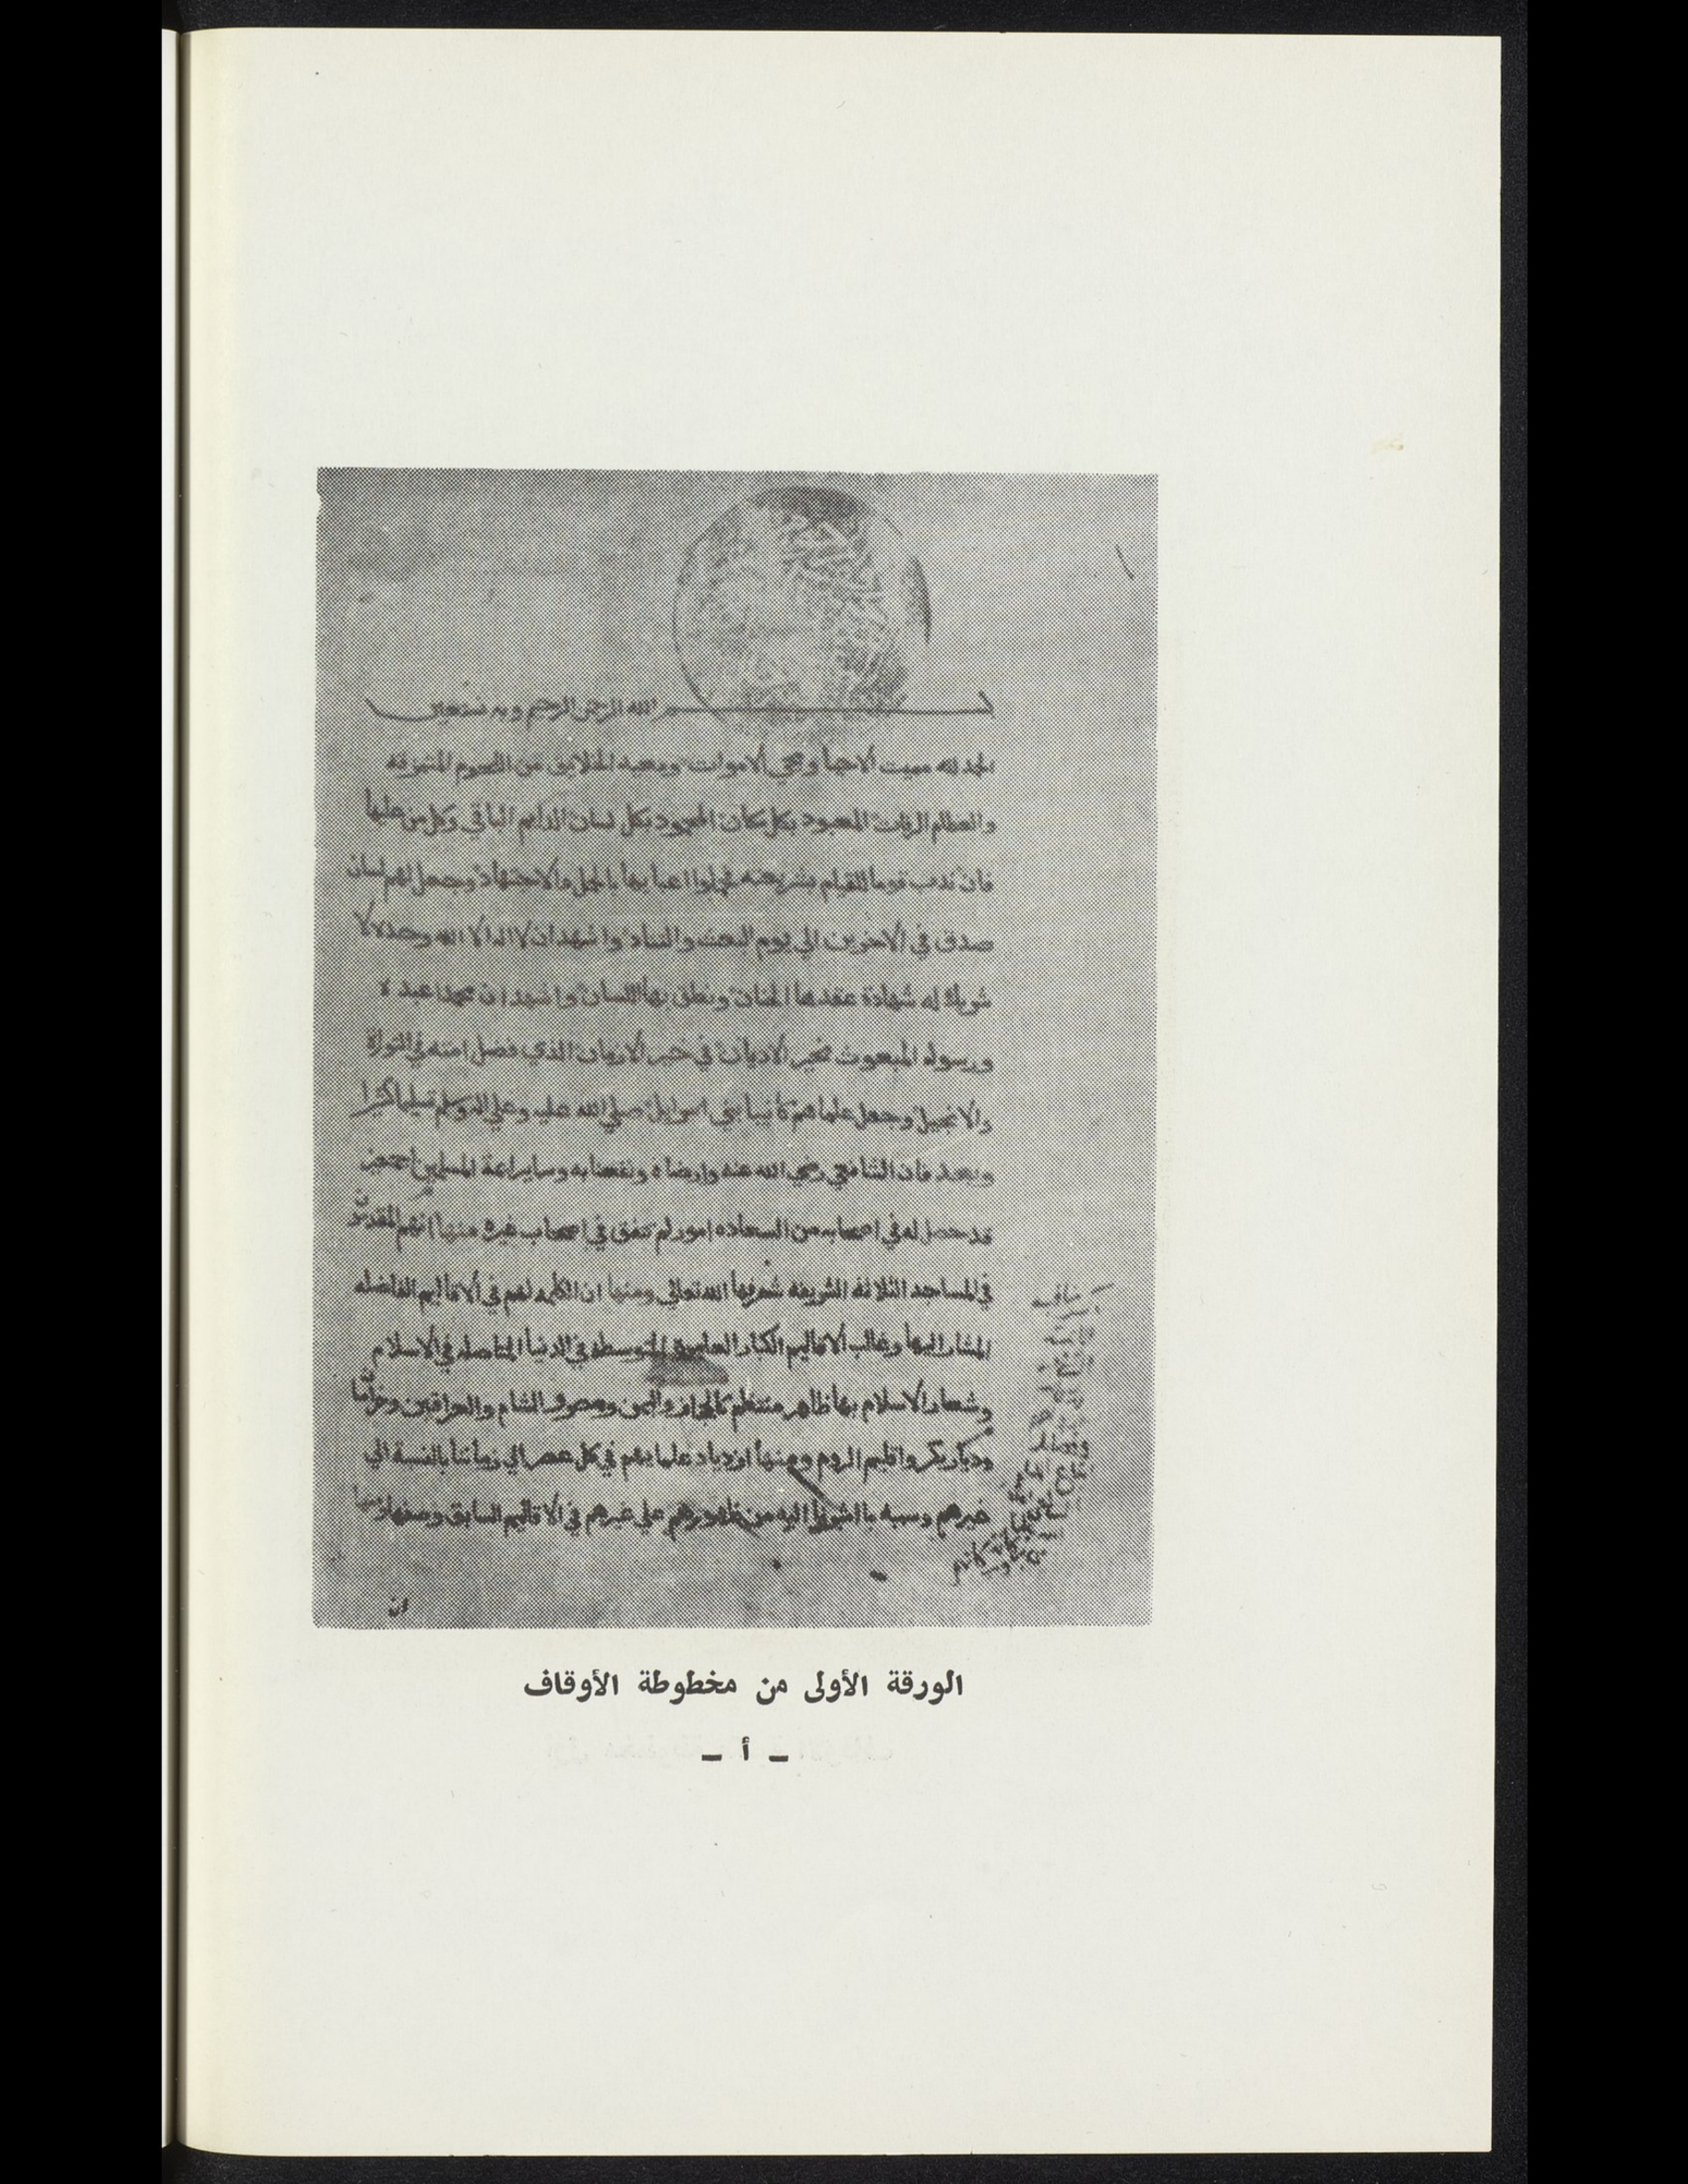 بسم الله الرحمن الرحيم وبه نستعين
الحمد لله مميت الاحيا ومحي الاموات ومعيد الخلايق من اللحوم المتمزقه
والعظام الرفات المعبود بكل مكان المحمود بكل لسان الدايم الباقي وكل من عليها
فان ندب قوما للقيام بشريعته فحملوا اعبابها بالحمل والاجتهاد وجعل لهم لسان
صدق في الاخرين الي يوم البعث والتناد واشهد ان لا اله الا الله وحده لا
شريك له شهادة عقدها الجنان ونطق بها اللسان واشهد ان محمدا عبده
ورسوله المبعوث بخير الاديان في خير الازمان الذي فضل امته في التوراة
والانجيل وجعل علماهم كانبيا بني اسرايل صلي الله عليه وعلي اله وسلم تسليما كثيرا
وبعد فان الشافعي رضي الله عنه وارضاه ونفعنا به وساير اءمة المسلمين اجمعين
قد حصل له في اصحابه من السعاده امور لم تتفق في اصحاب غيره منها انهم المقدمون
في المساجد الثلاثه الشريفه شرفها الله تعالي ومنها ان الكلمه لهم في الاقاليم الفاضله
المشار اليها وغالب الاقاليم الكبار العامره المتوسطه في الدنيا المتاصله في الاسلام
وشعار الاسلام بها ظاهر منتظم كالحجاز واليمن ومصر والشام والعراقين وخراسان
وديار بكر واقليم الروم ومنها ازدياد علمايهم في كل عصر الي زماننا بالنسبة الي
غيرهم وسببه ما اشرنا اليه من ظهورهم علي غيرهم في الاقاليم السابق وصفها ومنها
ان
الورقة الأولى من مخطوطة الأوقاف
ـ أ ـ